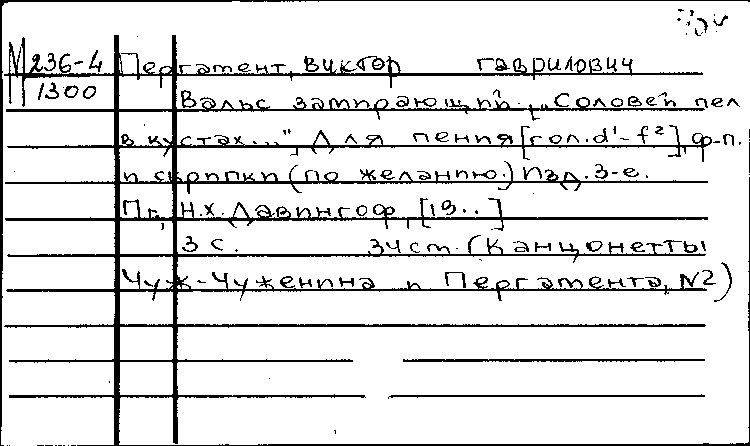 М 236-4 Пергамент, Виктор Гаврилович
1300
Вальс замирающий. [„Соловей пел
в кустах...“]. Для пения [гол. d¹-f²], ф-п.
и скрипки (по желанию.) Изд. 3-е.
Пг., Н.Х. Давингоф, [19..]
3 с. 34 cm. (Канцонетты
Чуж-Чуженина и Пергамента, N2)